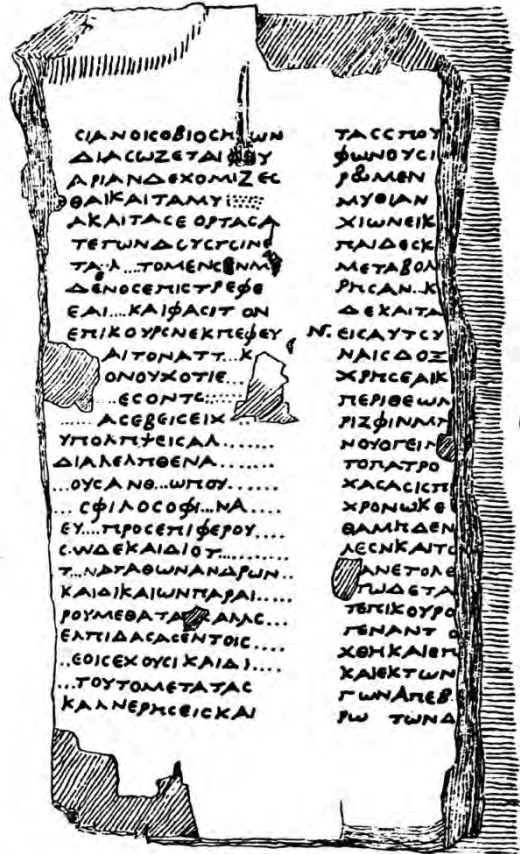 ϹΙΑΝΟΙϹΟΒΙΟϹΗ.ΩΝ
ΔΙΑϹΩΖΕΤΑΙ ΟΥ
ΑΡΙΑΝΔΕΧΟΜΙΖΕϹ
ΘΑΙΚΑΙΤΑΜΥ
ΑΚΑΙΤΑϹΕ ΟΡΤΑϹΑ
ΤΕΓΩΝΔϹΥϹΓϹΙΝΕ
ΤΑ..Λ...ΤΟΜΕΝϹΕΝΜ
ΔΕΝΟϹΕΠΙϹΤΡΕΦΕ
ΕΑΙ....ΚΑΙΦΑϹΙΤ ΟΝ
ΕΠΙΚΟΥΡϹΝΕΚΠΕΦΕΥ
ΑΙΤΟΝΑΤΤ...Κ
ΟΝΟΥΧΟΤΙΕ...
...ΕϹΟΝΤϹ
......ΑϹΕΒΕΙϹΕΙΧ
ΥΠΟΛΗΨΕΙϹΑΛ.......
ΔΙΑΛΕΛΗΘΕΝΑ.......
...ΟΥϹΑΝΘ...ΩΠΟΥ.....
...ϹΦΙΛΟϹΟΦΙ...ΝΑ....
ΕΥ....ΠΡΟϹΕΠΙΦΕΡΟΥ....
Ϲ.ΩΔΕΚΑΙΔΙΟΤ.........
Τ...ΝΑΓΑΘΩΝΑΝΔΡΩΝ..
ΚΑΙΔΙΚΑΙΩΝΠΑΡΑΙ.....
ΡΟΥΜΕΘΑΤΑ ΚΑΛΛϹ...
ΕΛΠΙΔΑϹΑϹΕΝΤΟΙϹ....
...ΕΟΙϹΕΧΟΥϹΙΚΑΙΔΙ....
...ΤΟΥΤΟΜΕΤΑΤΑϹ
ΚΑΛΝΕΡΗϹΕΙϹΚΑΙ
ΤΑϹϹΠΟΥ
ΦΩΝΟΥϹΙ
ΡΩΜΕΝ
ΜΥΘΙΑΝ
ΧΙΩΝΕΙΚ
ΠΑΙΔΕϹΚ
ΜΕΤΑΒΟΛ
ΡΗϹΑΝ..Κ
ΔΕΚΑΙΤΑ
Ν.ΕΙϹΑΥΤϹΥ
ΝΑΙϹΔΟΞ
ΧΡΗϹΕΑΙΚ
ΠΕΡΙΘΕΩΝ
ΡΙΖΦΙΝΜΗ
ΝΟΥΟΓΕΙΝ
ΤΟΠΑΤΡΟ
ΧΑϹΑϹΙϹΠ
ΧΡΟΝΩΚΕΕ
ΘΑΜΗΔΕΝ
ΛΕϹΝΚΑΙΤϹ
ΑΝΕΤΟΛΕ
ΤΩΔΕΤΑ
ΤΕΠΙΚΟΥΡΟ
ΓΕΝΑΝΤ Ο
ΧΘΗΚΑΙΕΠ
ΚΑΙΕΚΤΩΝ
ΓΩΝΑΠΕΒ.Ε
ΡΩ ΤΩΝΔ